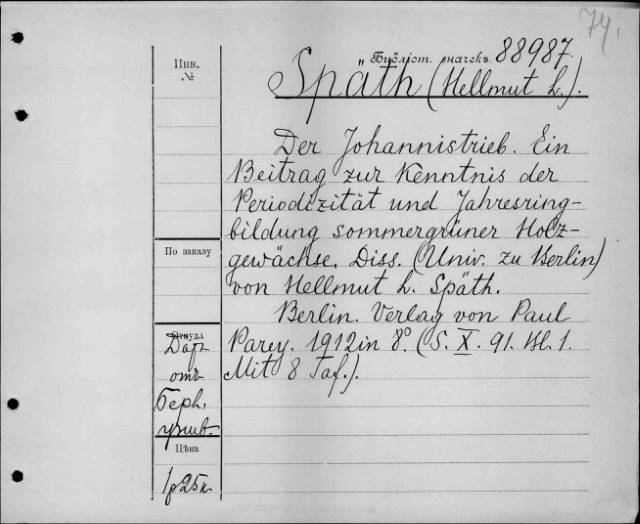 74.
Библіот. значекъ. 88987.
Инв.
№
Späth (Hellmut L.).
Der Johannistrieb. Ein
Beitrag zur Kenntnis der
Periodizität und Jahresring-
bildung sommergrüner Holz-
gewächse. Diss. (Univ. zu Berlin)
von Hellmut L. Späth.
Berlin. Verlag von Paul
Parey. 1912 in 8°. (S. X. 91. Bl. 1.
Mit 8 Taf.).
По заказу
Откуда
Даръ
отъ
Берл.
унив.
Цѣна
1р25к.